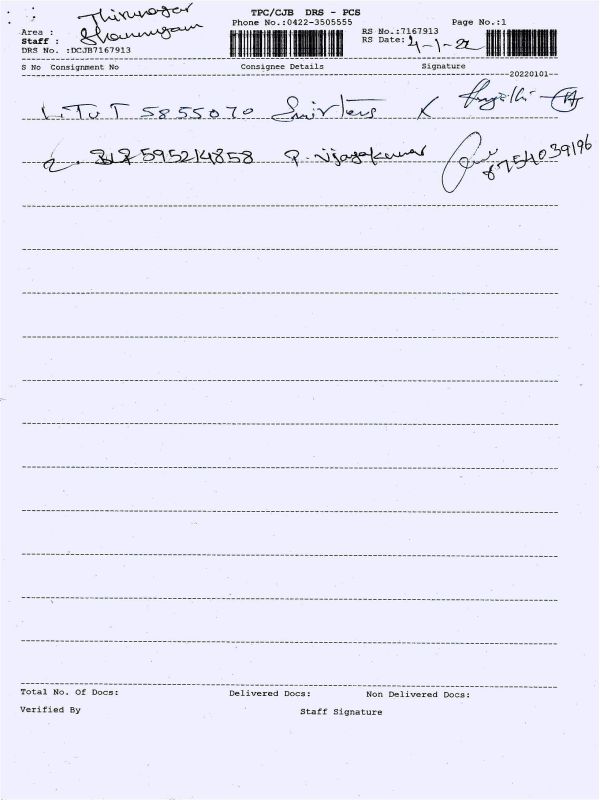 TPC/CJB DRS - PCS
Phone No.:0422-3505555
Page No.:1
Area : Thirunagar
Staff : Shanmugam
DRS No. :DCJB7167913
RS No.:7167913
RS Date: 4-1-22
S No Consignment No Consignee Details Signature
--20220101--
1. TUT 5855070
2. 595214858 P. Vijayakumar 8754039196
Total No. Of Docs: Delivered Docs: Non Delivered Docs:
Verified By Staff Signature